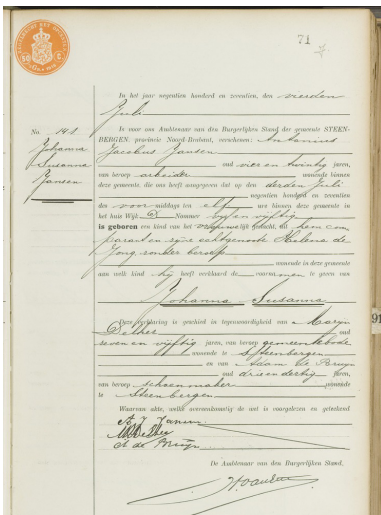 71
In het jaar negentien honderd en zeventien, den vierden
Juli
No. 191
Is voor ons Ambtenaar van den Burgerlijken Stand der gemeente STEEN-
BERGEN, provincie Noord-Brabant, verschenen: Antonius
Johanna
Susanna
Jansen
Jacobus Jansen
oud vier en twintig jaren,
van beroep arbeider wonende binnen
deze gemeente, die ons heeft aangegeven dat op den derden Juli
negentien honderd en zeventien
des voormiddags ten elf ure binnen deze gemeente in
het huis Wijk D Nummer vijf en vijftig
is geboren een kind van het vrouwelijk geslacht, uit hem com-
parant en zijne echtgenoote Helena de
Jong, zonder beroep
wonende in deze gemeente
aan welk kind hij heeft verklaard de voornamen te geven van
Johanna Susanna
Deze verklaring is geschied in tegenwoordigheid van Maryn
oud
zeven en vijftig jaren, van beroep gemeentebode
wonende te Steenbergen
en van Adam de Bruyn
oud drie en dertig jaren,
van beroep schoenmaker wonende
te Steenbergen
Waarvan akte, welke overeenkomstig de wet is voorgelezen en geteekend
A. J. Jansen
A. de Bruyn
De Ambtenaar van den Burgerlijken Stand,